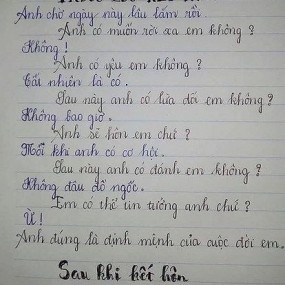 Anh chờ ngày này lâu lắm rồi.
Anh có muốn rời xa em không ?
Không !
Anh có yêu em không ?
Tất nhiên là có.
Sau này anh có lừa dối em không ?
Không bao giờ.
Anh sẽ hôn em chứ ?
Mỗi khi anh có cơ hội.
Sau này anh có đánh em không ?
Không đâu đồ ngốc.
Em có thể tin tưởng anh chứ ?
Ừ !
Anh đúng là định mệnh của cuộc đời em.
Sau khi kết hôn